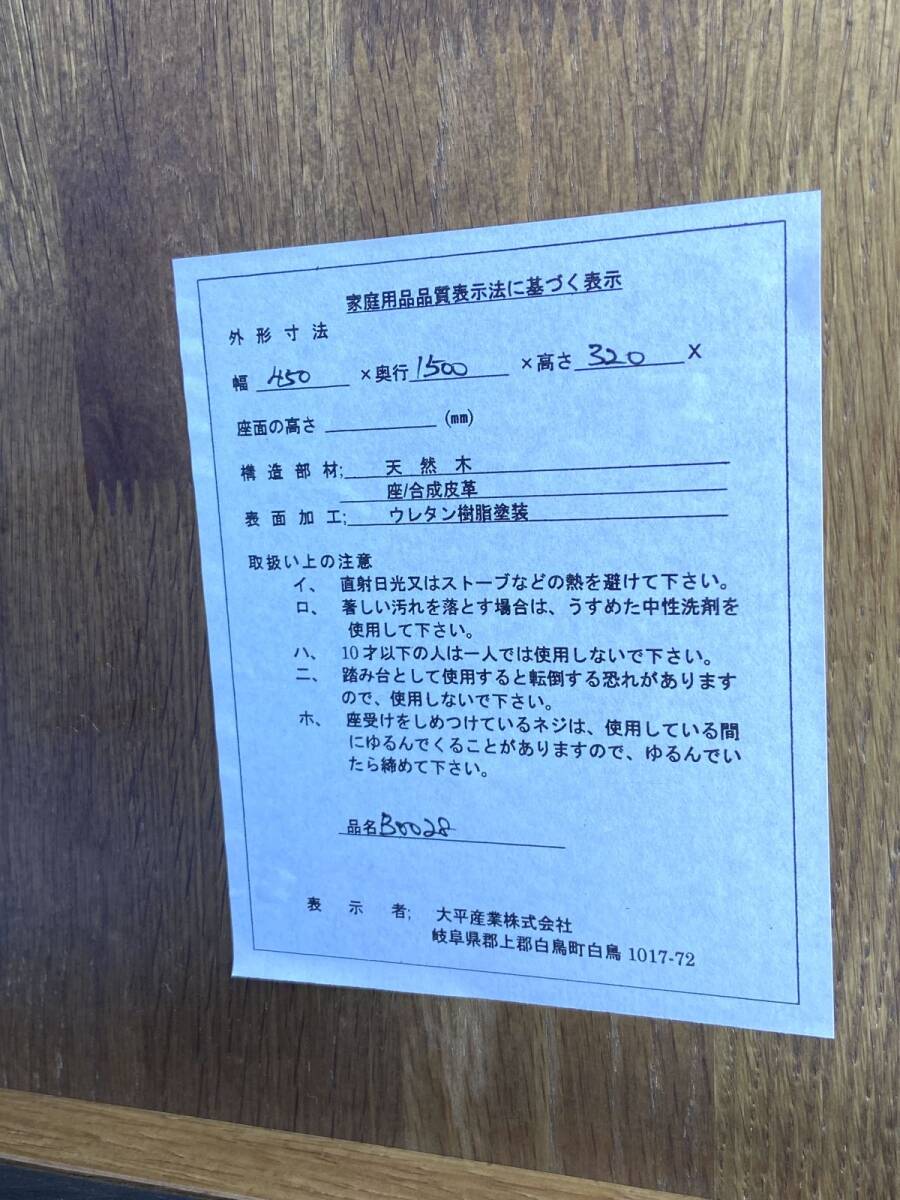 家庭用品品質表示法に基づく表示
外形寸法
幅 450 ×奥行 1500 ×高さ 320 X
座面の高さ (mm)
構造部材; 天然木
座/合成皮革
表面加工; ウレタン樹脂塗装
取扱い上の注意
イ、 直射日光又はストーブなどの熱を避けて下さい。
ロ、 著しい汚れを落とす場合は、うすめた中性洗剤を
使用して下さい。
ハ、 10才以下の人は一人では使用しないで下さい。
ニ、 踏み台として使用すると転倒する恐れがあります
ので、使用しないで下さい。
ホ、 座受けをしめつけているネジは、使用している間
にゆるんでくることがありますので、ゆるんでい
たら締めて下さい。
品名 B0028
表示者; 大平産業株式会社
岐阜県郡上郡白鳥町白鳥 1017-72